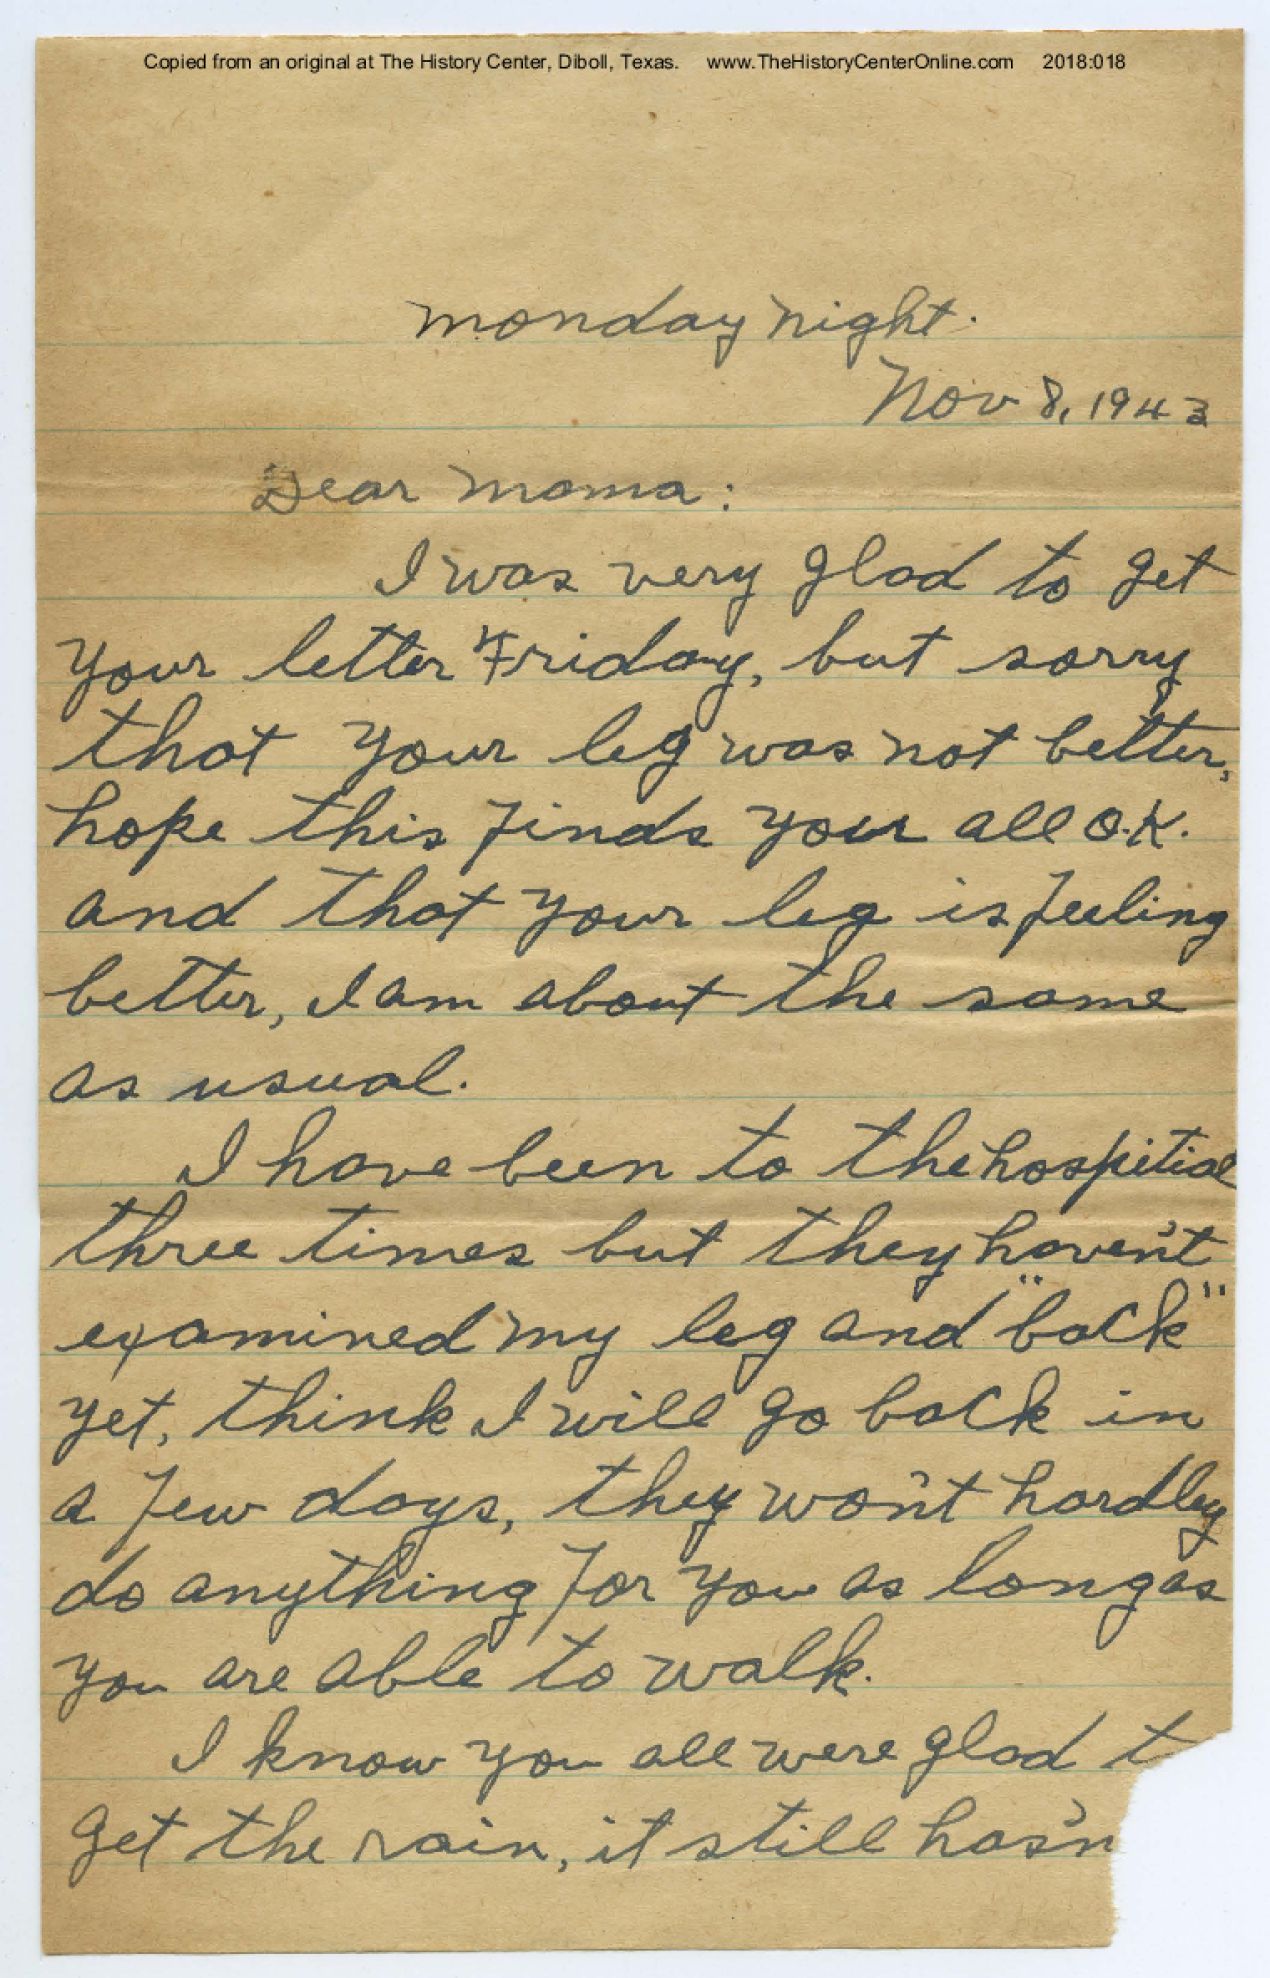 Copied from an original at The History Center, Diboll, Texas. www.TheHistoryCenterOnline.com 2018:018
Monday night.
Nov 8, 1943
Dear Moma:
I was very glad to get
your letter Friday, but sorry
that your leg was not better,
hope this finds you all O.K.
and that your leg is feeling
better, I am about the same
as usual.
I have been to the hospitial
three times but they haven't
examined my leg and "back"
yet, think I will go back in
a few days, they won't hardley
do anything for you as long as
you are able to walk.
I know you all were glad t
get the rain, it still has'n